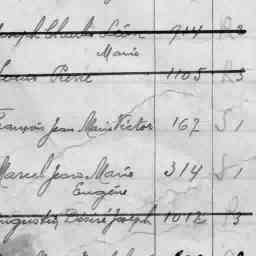 Joseph Charles Léon 914 R3
Marie
Louis René 1105 R3
François Jean Marie Victor 167 S1
Marcel Jean Marie 314 S1
Eugène
Augustin Désiré Joseph 1012 R3